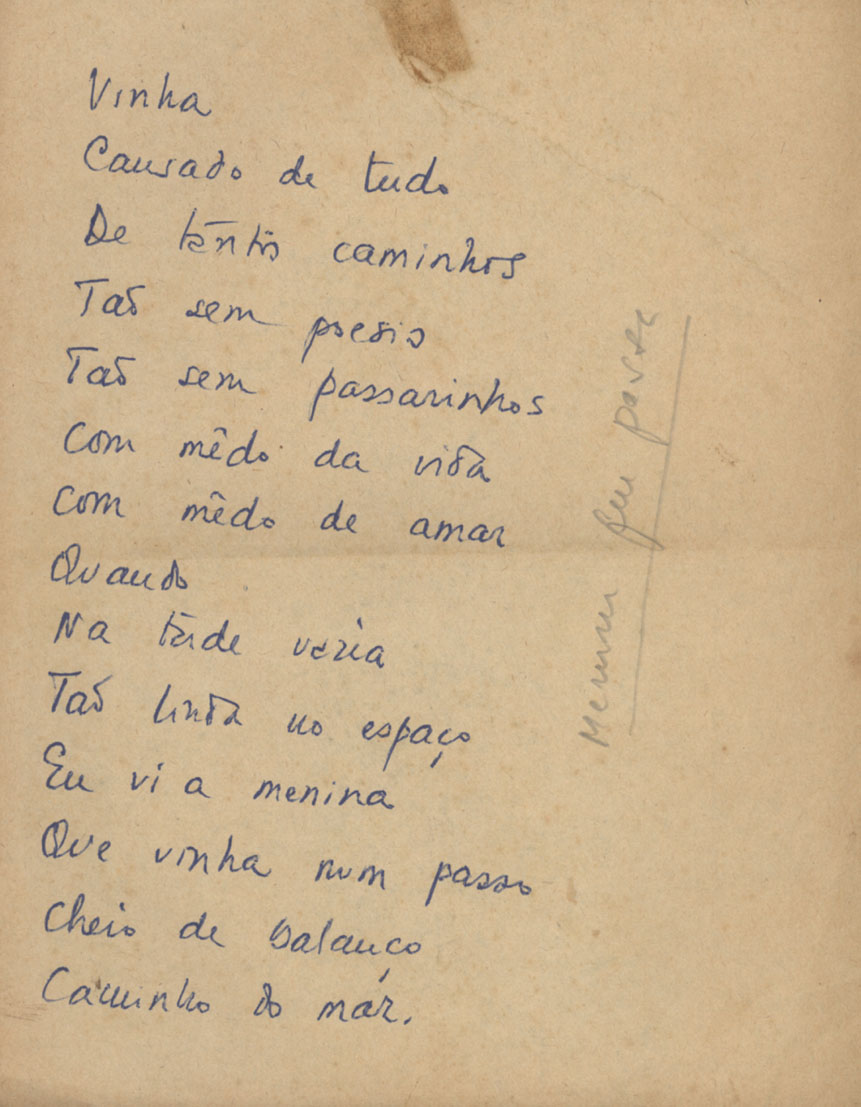 Vinha
Cansado de tudo
De tantos caminhos
Tão sem poesia
Tão sem passarinhos
Com mêdo da vida
Com mêdo de amar
Quando
Na tarde vazia
Tão linda no espaço
Eu vi a menina
Que vinha num passo
Cheio de balanço
Caminho do mar.
Menina que passa